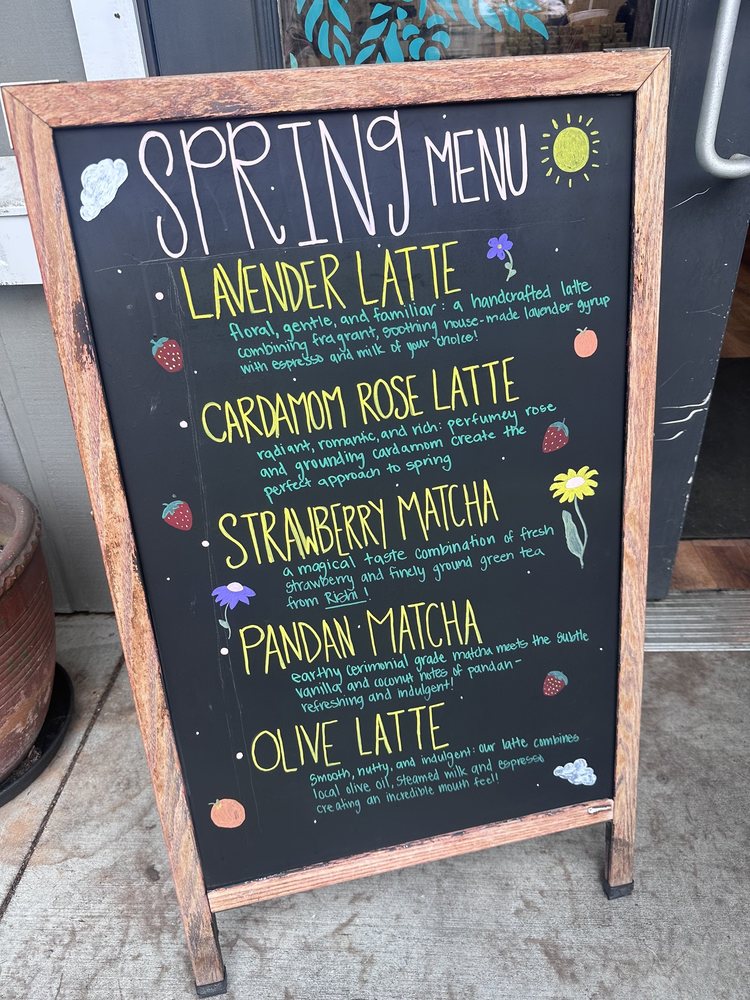 SPRING MENU
LAVENDER LATTE
floral, gentle, and familiar: a handcrafted latte
combining fragrant, soothing house-made lavender syrup
with espresso and milk of your choice!
CARDAMOM ROSE LATTE
radiant, romantic, and rich: perfumey rose
and grounding cardamom create the
perfect approach to spring
STRAWBERRY MATCHA
a magical taste combination of fresh
strawberry and finely ground green tea
from Rishi!
PANDAN MATCHA
earthy cerimonial grade matcha meets the subtle
vanilla and coconut notes of pandan-
refreshing and indulgent!
OLIVE LATTE
smooth, nutty, and indulgent: our latte combines
local olive oil, steamed milk and espresso
creating an incredible mouth feel!